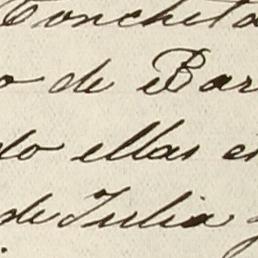 Conchita
o de Bar
do ellas e
de Julia